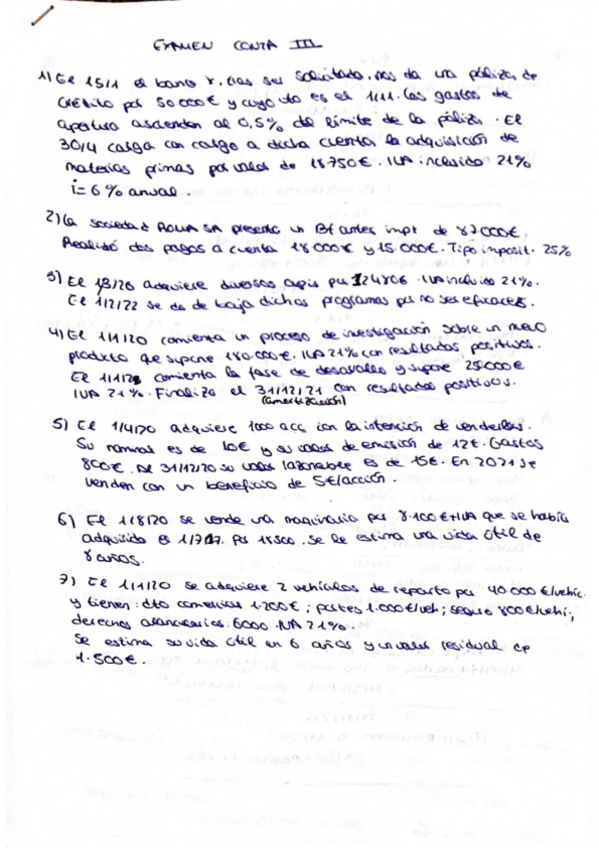 EXAMEN CONTA III
1) El 15/1 el banco X, tras ser solicitado, nos da una póliza de
crédito por 50.000€ y cuyo vto es el 1/11. Los gastos de
apertura ascienden al 0,5% del límite de la póliza. El
30/4 carga con cargo a dicha cuenta la adquisición de
materias primas por valor de 18.750€. IVA incluido 21%
i=6% anual.
2) La sociedad ROLVA SA presenta un Bf antes impt de
Realizó dos pagos a cuenta 18.000€ y 15.000€. Tipo imposit. 25%
3) El adquiere diversas por IVA incluido 21%.
El 1/2/22 se da de baja dichos programas por no ser eficaces.
4) El 1/1/20 comienza un proceso de investigación sobre un nuevo
producto que supone 140.000€, IVA 21% con resultados positivos.
El comienza la fase de desarrollo y supone
IVA 21%. Finaliza el 31/12/21 con resultados positivos.
(amortización)
5) El 1/4/20 adquiere 1000 acc con la intención de venderlas.
Su nominal es de 10€ y su valor de emisión de 12€. Gastos
800€. Al 31/12/20 su valor razonable es de 15€. En 2021 se
venden con un beneficio de 5€/acción.
6) El 1/8/20 se vende una maquinaria por 8.100€+IVA que se había
adquirido el 1/7/17 por 18.500. Se le estima una vida útil de
8 años.
7) El 1/1/20 se adquiere 2 vehículos de reparto por 40.000€/vehíc.
y tienen: dto comercial 1.200€; portes 1.000€/veh; seguro 800€/vehi;
derechos arancelarios: 6000. IVA 21%.
Se estima su vida útil en 6 años y un valor residual de
1.500€.